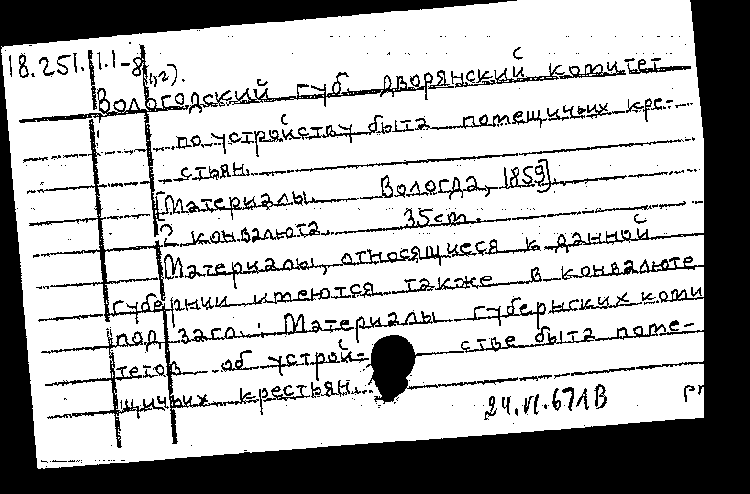 18.251.1.1-8
Вологодский губ. дворянский комитет
по устройству быта помещичьих кре-
стьян.
[Материалы. Вологда, 1859].
2 конвалюта. 35 cm.
Материалы, относящиеся к данной
губернии имеются также в конвалюте
под загл.: Материалы губернских коми
тетов об устрой- стве быта поме-
щичьих крестьян.
24.VI.67 ЛВ